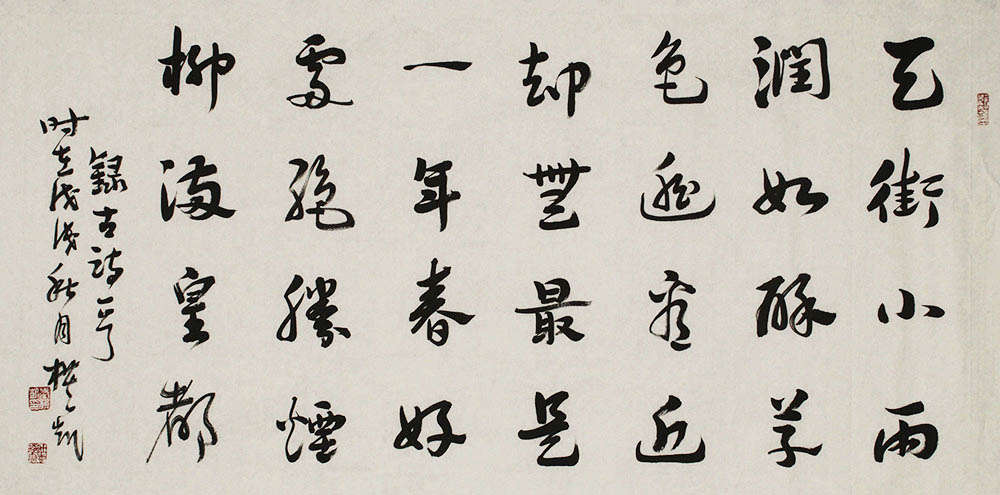 天街小雨
潤如酥草
色遥看近
却無最是
一年春好
處絕勝煙
柳滿皇都
錄古詩一首
时在戊戌秋月